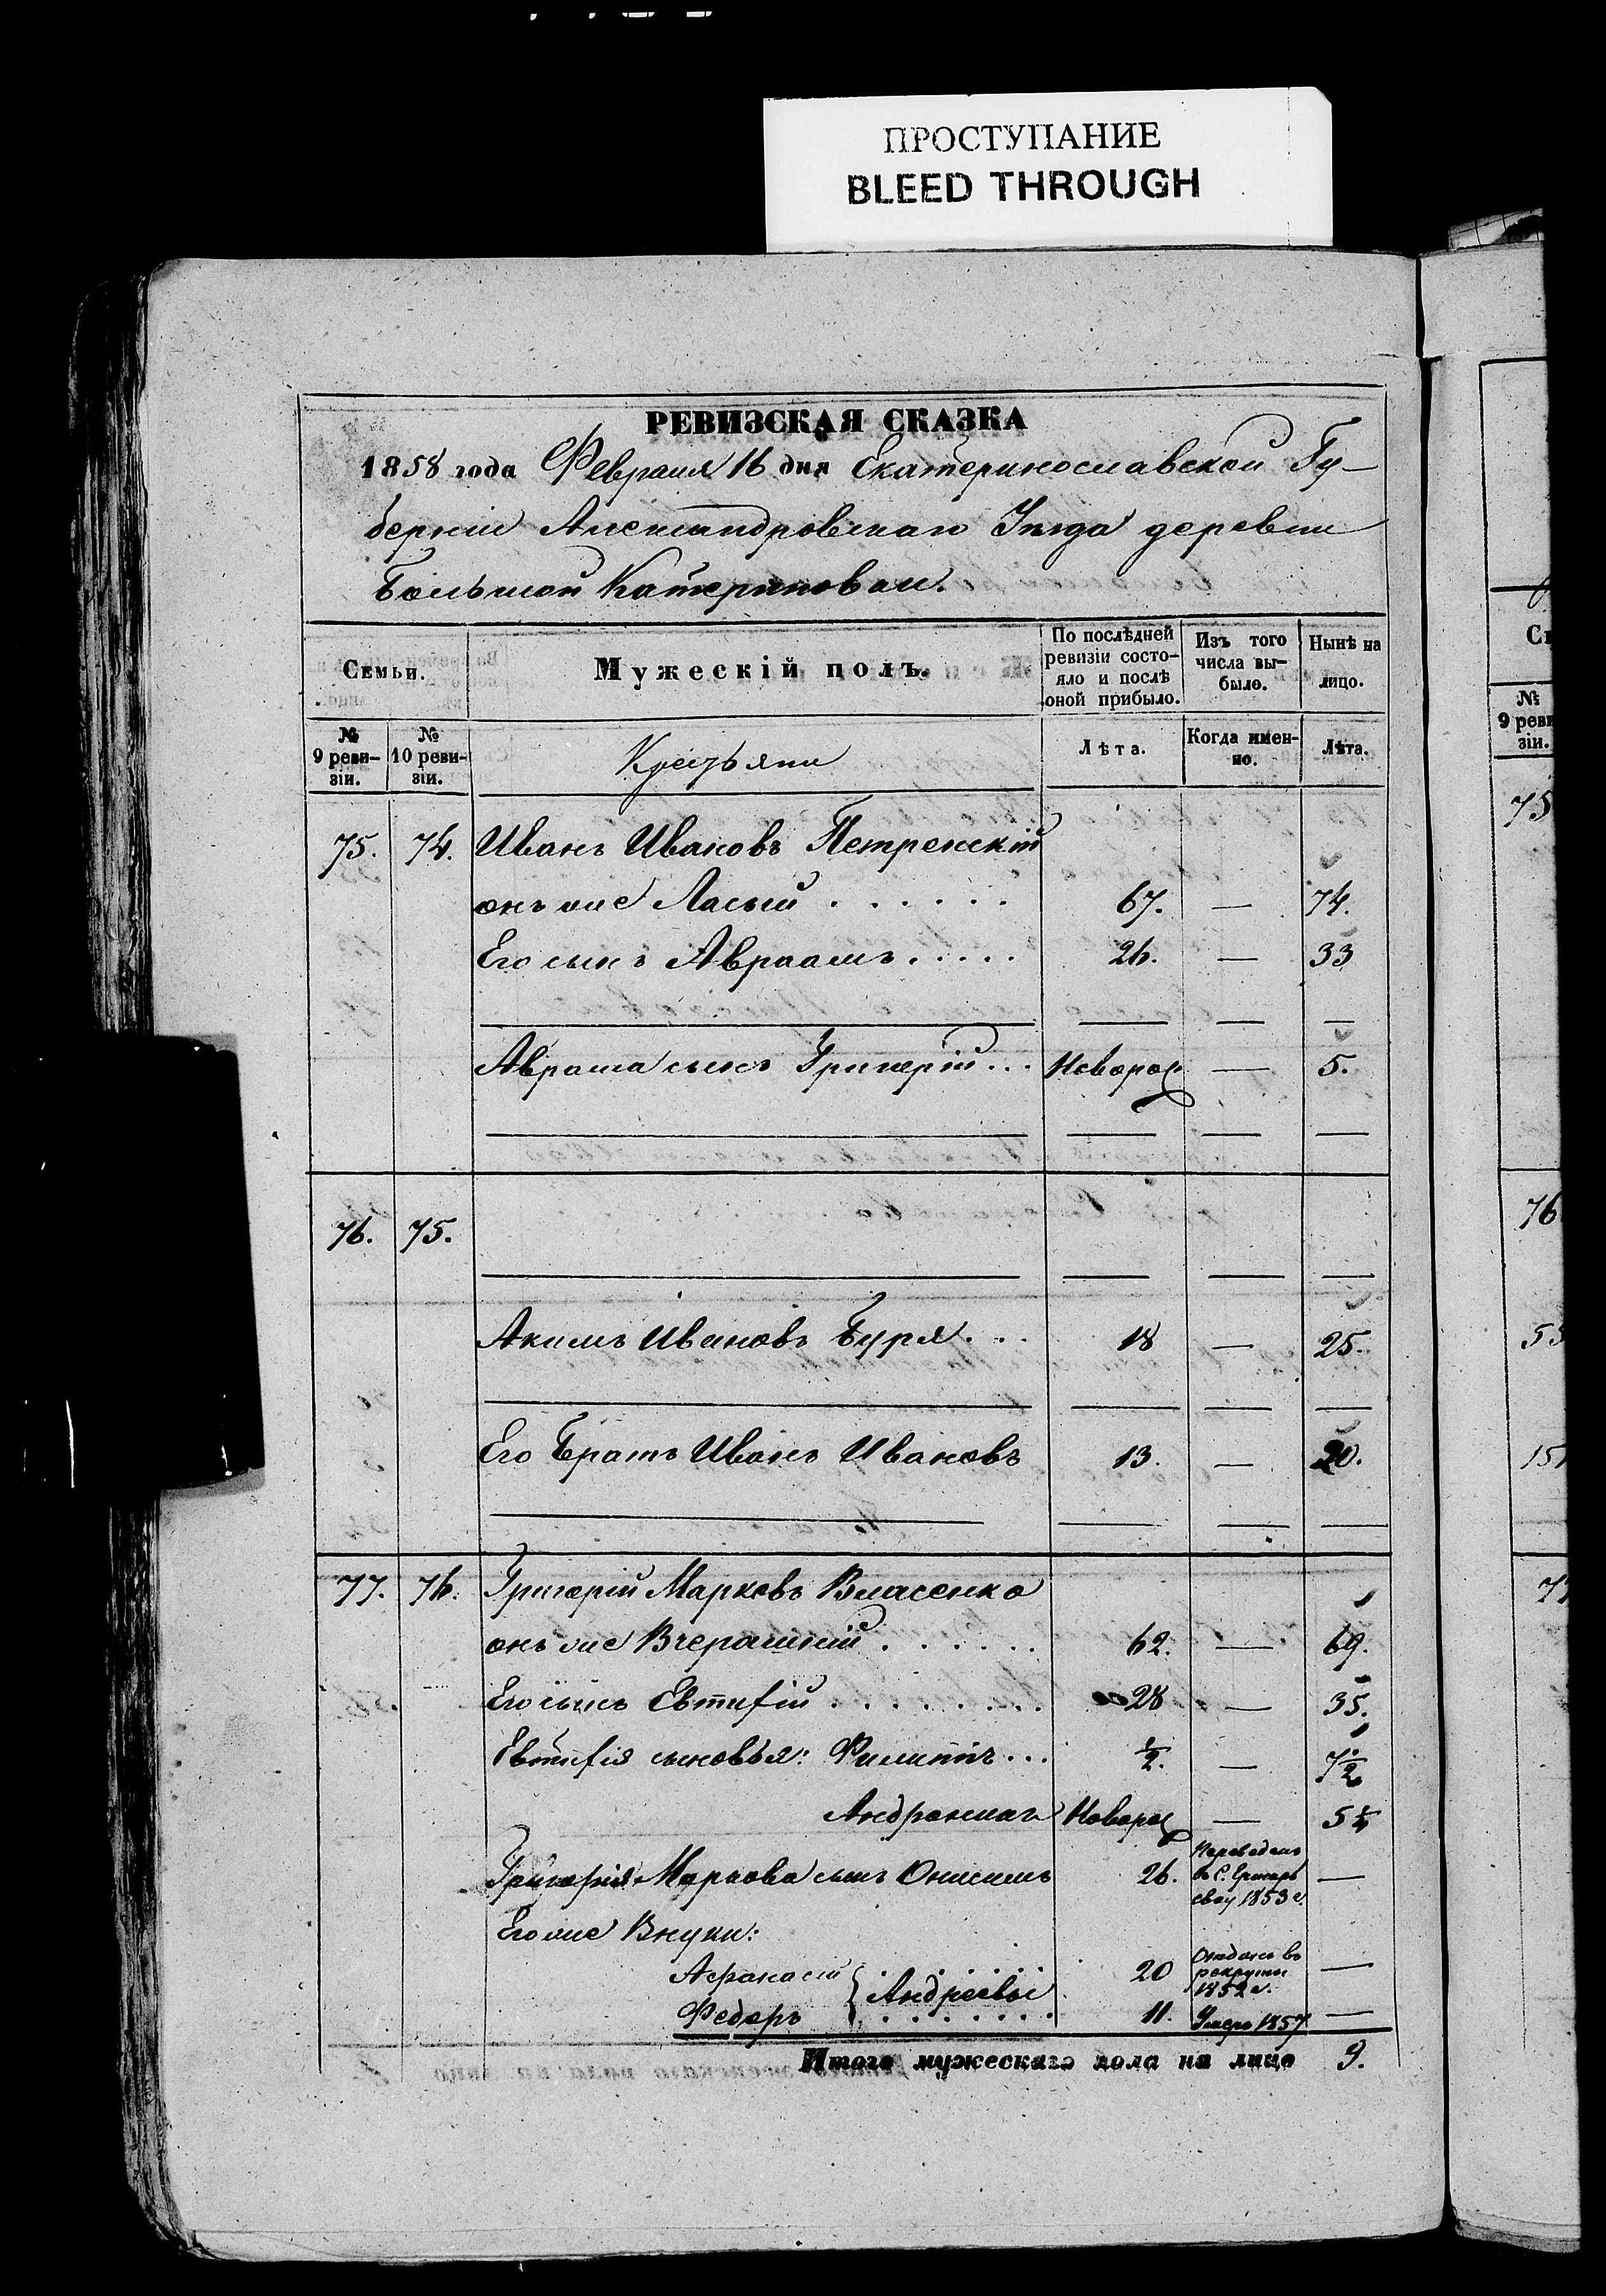 ПРОСТУПАНИЕ
BLEED THROUGH
РЕВИЗСКАЯ СКАЗКА
1858 года Февраля 16 дня Екатеринославской Гу-
берніи Александровскаго Уѣзда деревни
Большой Катериновки.
Семьи. Мужескій полъ. По послѣдней ревизіи состояло и послѣ оной прибыло. Изъ того числа выбыло. Нынѣ на лицо.
№ 9 реви-зіи. № 10 реви-зіи. Крестьяни Лѣта. Когда имен-но. Лѣта.
75. 74. Иванъ Ивановъ Петренскій
онъ же Лысый . . . . . . 67. — 74.
Его сынъ Авраамъ . . . . . 26. — 33
Аврама сынъ Григорій . . . Новорож — 5.
76. 75.
Акимъ Ивановъ Буря . . . 18 — 25.
Его Братъ Иванъ Ивановъ 13. — 20.
77. 76. Григорій Марковъ Власенко
онъ же Вчерашній . . . . . . 62. — 69.
Его сынъ Евтифій . . . . . . . . 28 — 35.
Евтифія сыновья: Филиппъ . . . ½. — 7½
Андроникъ Новорож — 5¼
Григорія Маркова сынъ Онисимъ 26. Переведенъ въ С. 1853 г. —
Его же Внуки:
Афанасій } Андреевы 20 Отданъ въ рекруты 1852 г. —
Федоръ 11. Умеръ 1857 —
Итого мужескаго пола на лицо 9.
№ 9 реви зіи.
75
76